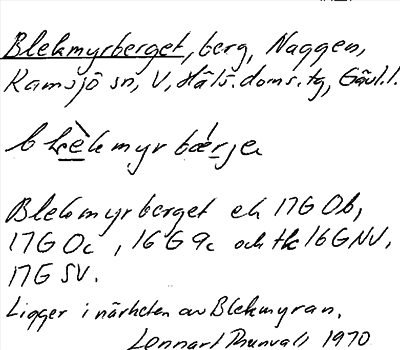 Blekmyrberget, berg, Naggen,
Ramsjö sn, V. Häls. doms. tg, Gävl. l.
blèkmyrbǽrje
Blekmyrberget ek 17G 0b,
17G 0c, 16G 9c och tk 16G NV,
17G SV.
Ligger i närheten av Blekmyran.
Lennart Thunvall 1970